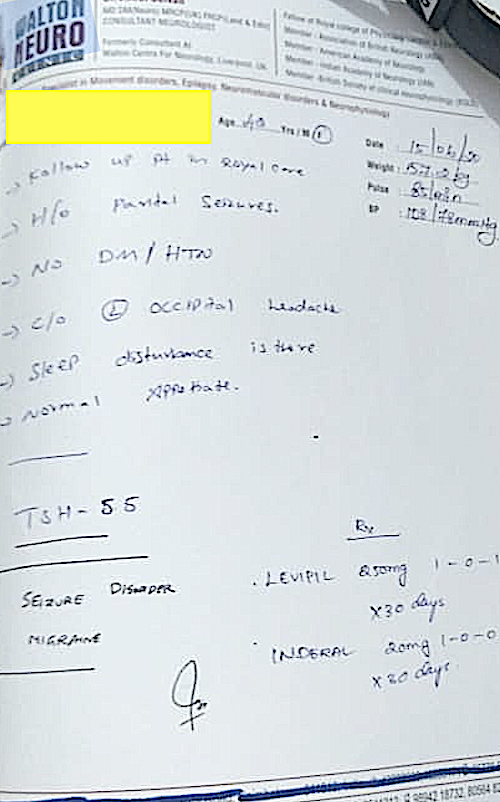 WALTON
NEURO
CONSULTANT NEUROLOGIST
Formerly Consultant At
Walton Centre For Neurology, Liverpool, UK.
Fellow of Royal college of
Member - Association of British Neurology
Member - American Academy of Neurology
Member - Indian Academy of Neurology (IAN)
Member - British Society of clinical neurophysiology
Specialist in Movement disorders, Epilepsy, Neuromuscular disorders & Neurophysiology
Age 40 Yrs / M / F
Date
Weight : 
Pulse : 85/min
BP : 108/78mmHg
→ Follow up Pt in Royal care
→ H/o Partial Seizures.
→ NO DM / HTN
→ C/o OCCIPITAL headache
→ Sleep disturbance is there
→ Normal
TSH - 5.5
SEIZURE DISORDER
MIGRAINE
Rx
. LEVIPIL 250mg 1-0-1
x 30 days
. INDERAL 20mg 1-0-0
x 30 days
98942 18732,